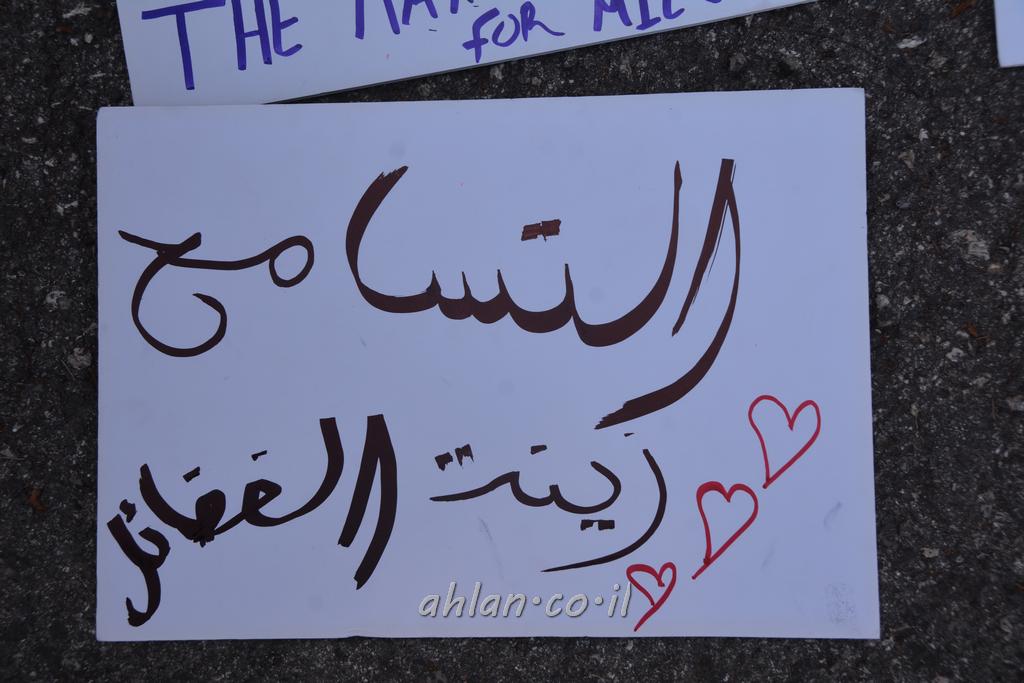 THE
FOR
التسامح
زينت الفضائل
ahlan.co.il